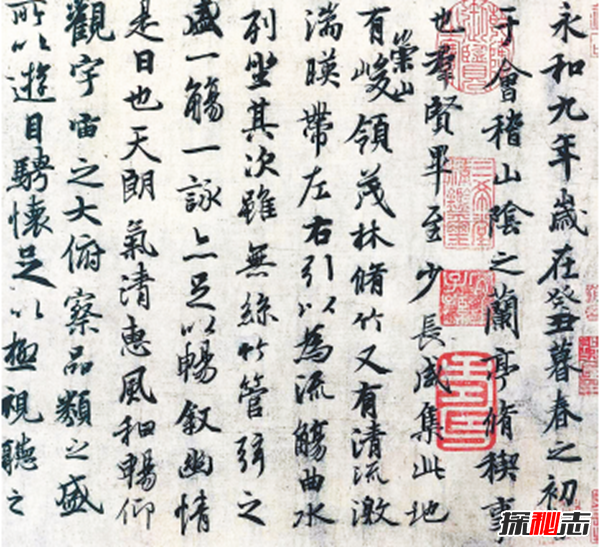 永和九年歲在癸丑暮春之初
于會稽山陰之蘭亭脩稧事
也羣賢畢至少長咸集此地
有崇山峻領茂林脩竹又有清流激
湍暎帶左右引以為流觴曲水
列坐其次雖無絲竹管弦之
盛一觴一詠亦足以暢敘幽情
是日也天朗氣清惠風和暢仰
觀宇宙之大俯察品類之盛
所以遊目騁懷足以極視聽之
三希堂精鑑璽
宜子孫
探秘志